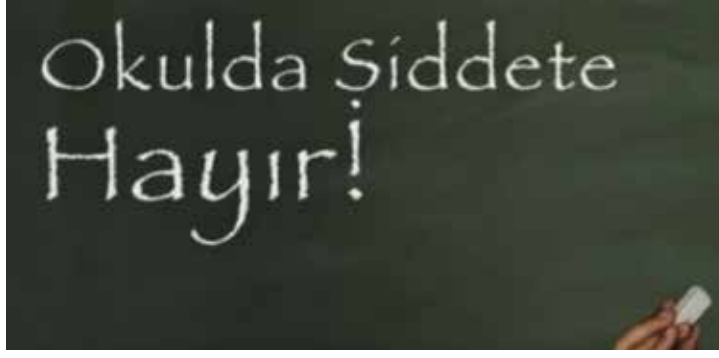 Okulda Şiddete
Hayır!